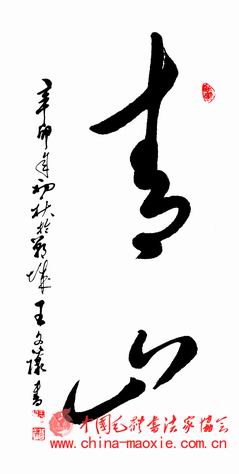 青山
辛卯年初秋於鄴城王文岳書
中国毛体书法家协会
www.china-maoxie.com.cn